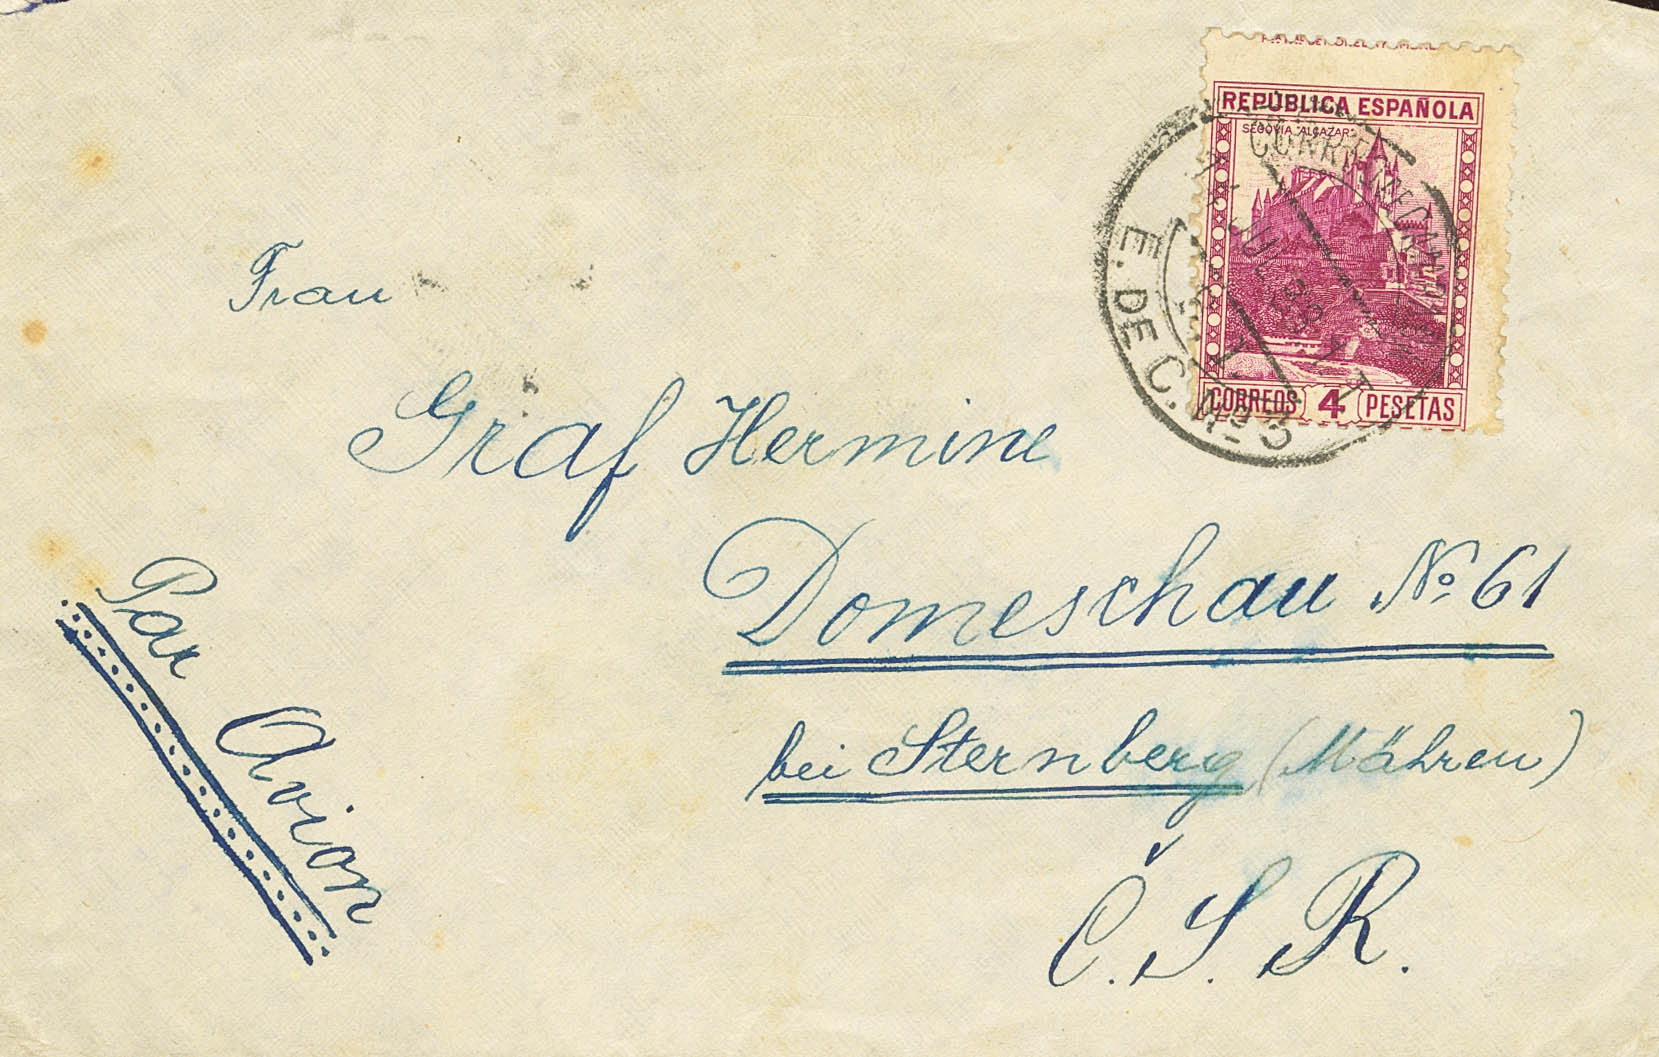 REPÚBLICA ESPAÑOLA
SEGOVIA "ALCAZAR"
CORREOS 4 PESETAS
E. DE C. Nº 3
JUL
Frau
Graf Hermine
Domeschau Nº 61
bei Sternberg (Mähren)
Č. S. R.
Par Avion